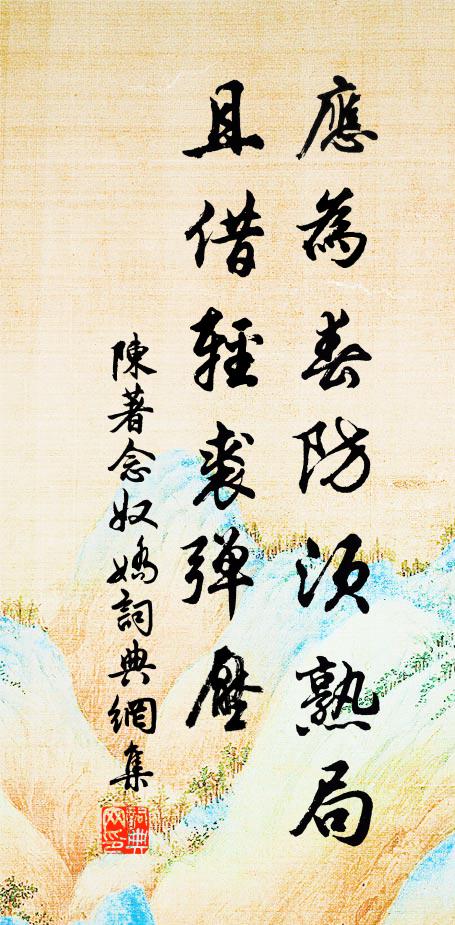 應為春防須熟局
且借輕裘彈壓
陳著念奴嬌詞典網集
詞典網印